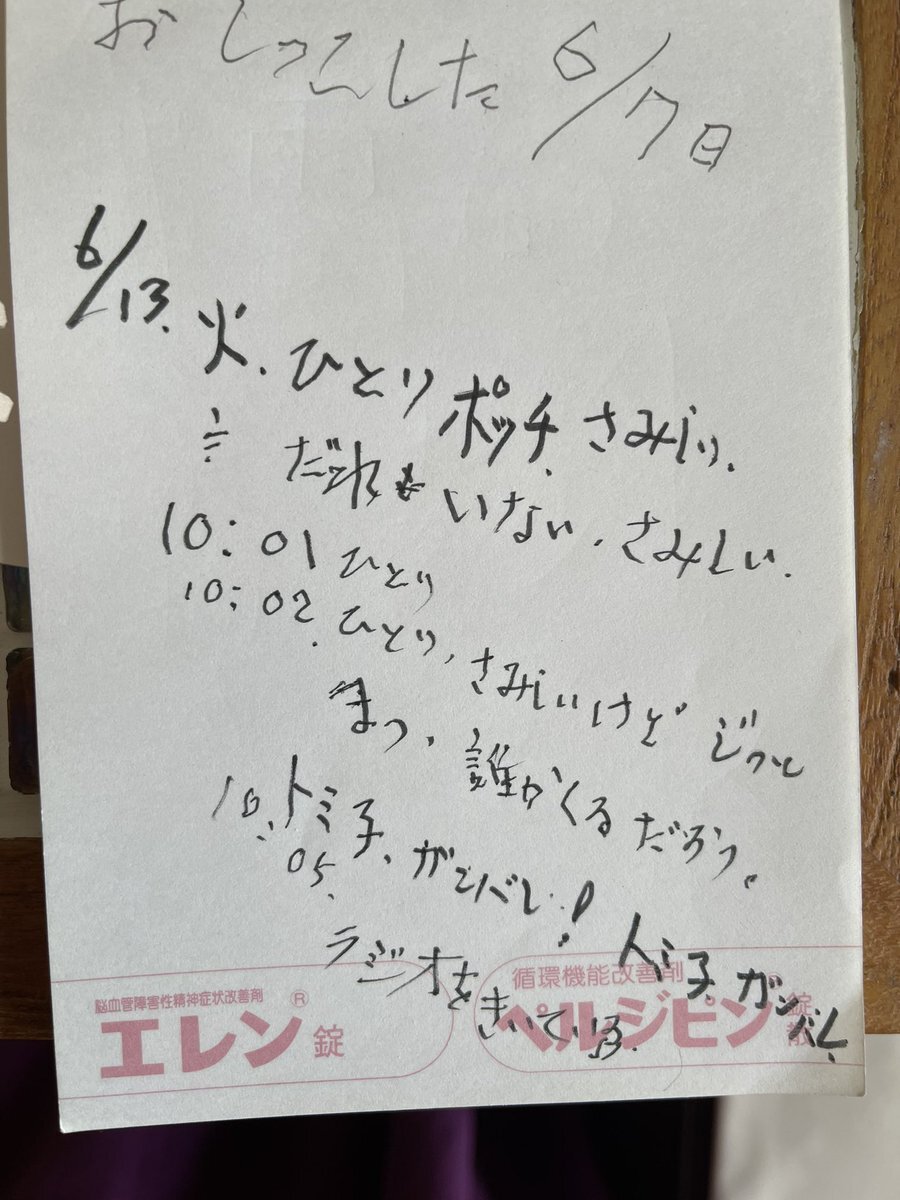 おしっこした 6/7日
6/13. 火. ひとりポッチ. さみしい.
だれもいない. さみしい.
10:01 ひとり
10:02. ひとり, さみしいけど ジっと
まつ, 誰かくるだろう。
10:05. トミ子, ガンバレ! トミ子, ガンバレ!
ラジオをきいている.
脳血管障害性精神症状改善剤
エレン® 錠
循環機能改善剤
ペルジピン® 錠 散